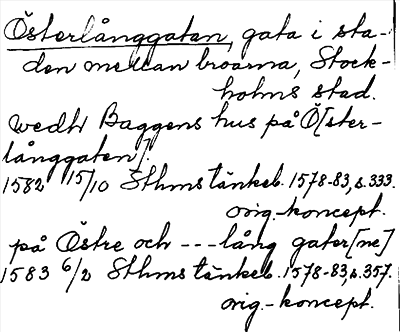 Österlånggatan, gata i sta-
den mellan broarna, Stock-
holms stad.
wedh Baggens hus på Ö[ster-
långgaten].
1582 15/10 Sthms tänkeb. 1578-83, s. 333.
orig.-koncept.
på Östre och --- lång gater[ne]
1583 6/2 Sthms tänkeb. 1578-83, s. 357.
orig.-koncept.